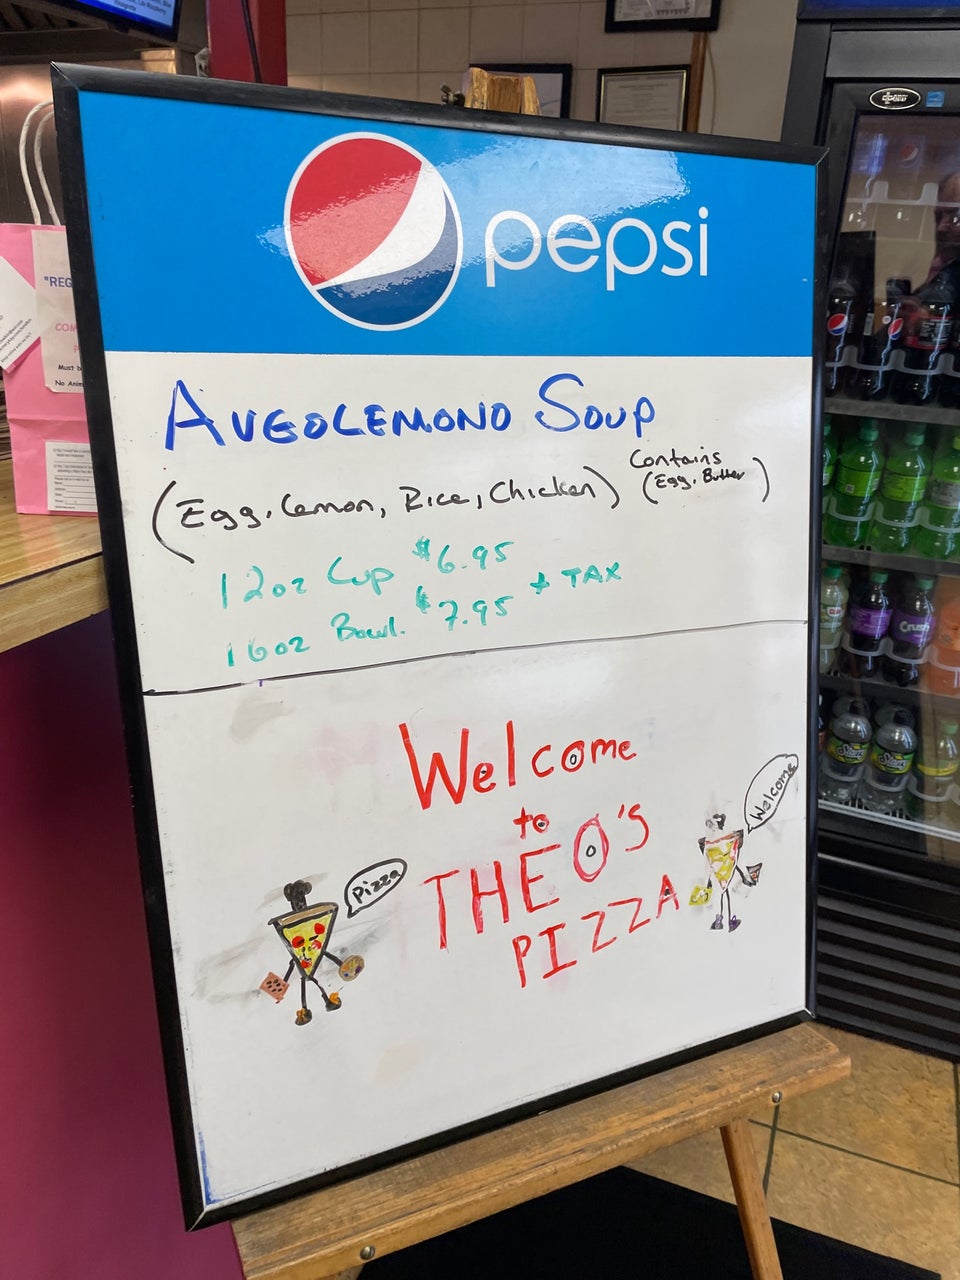 pepsi
AVGOLEMONO SOUP
(Egg, Lemon, Rice, Chicken)
Contains
(Egg, Butter)
12oz Cup $6.95
16oz Bowl. $7.95
+ TAX
Welcome
to
THEO'S
PIZZA
Pizza
Welcome
"REG
COM
Must b
No Anim
Crush